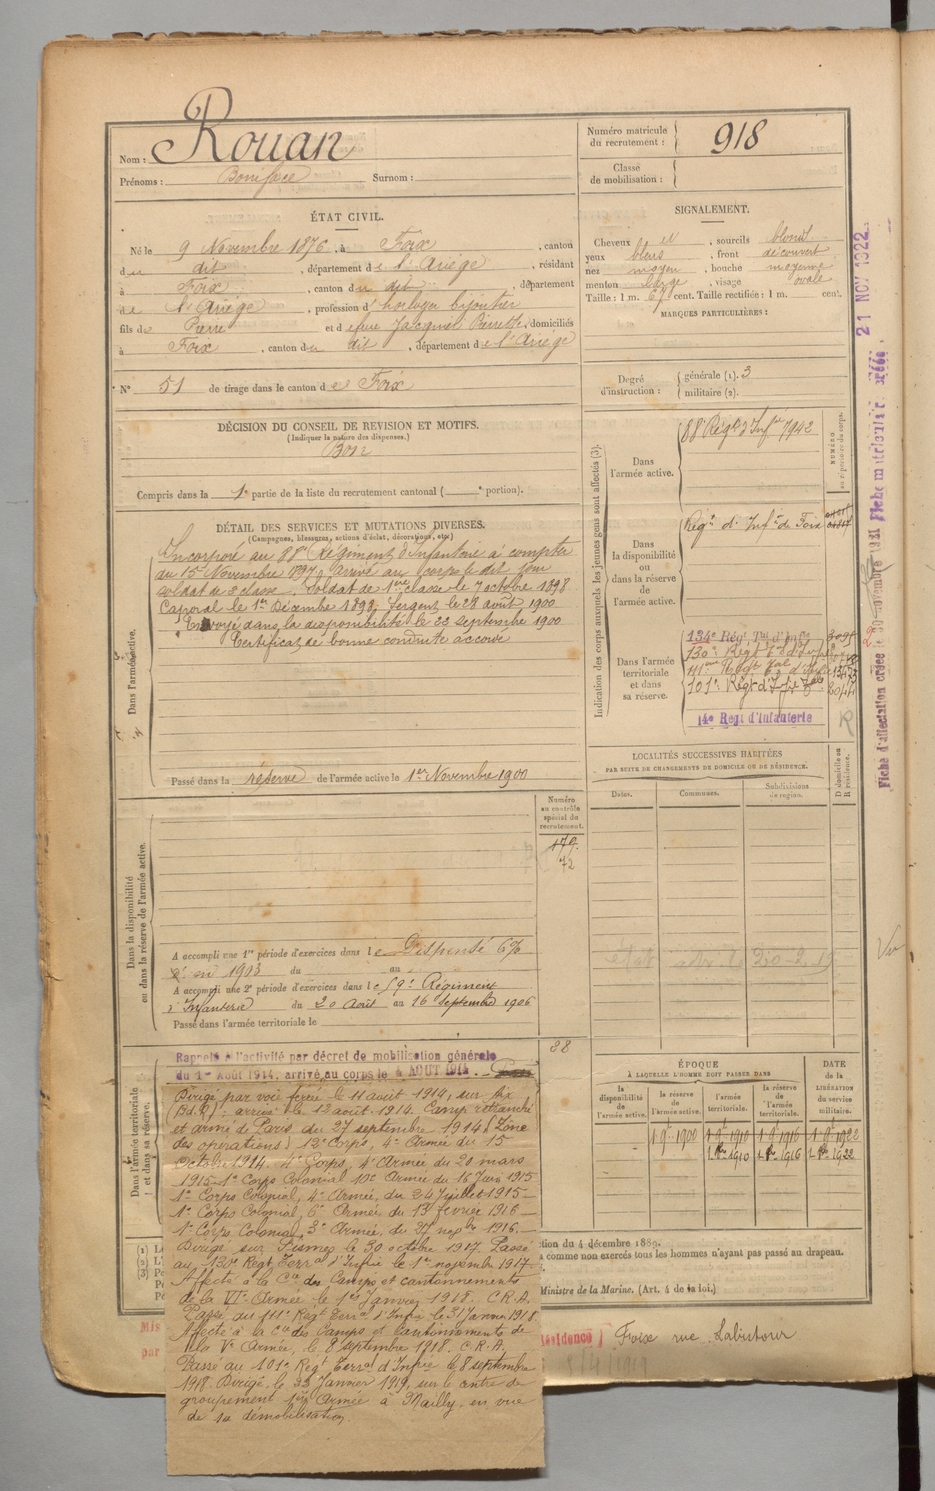 Nom : Rouan
Prénoms : Boniface Surnom :
Numéro matricule du recrutement : 918
Classe de mobilisation :
ÉTAT CIVIL.
Né le 9 Novembre 1876, à Foix, canton
du dit, département de l'Ariège, résidant
à Foix, canton du dit, département
de l'Ariège, profession d'horloger bijoutier
fils de Pierre et de feue Jacquet Pierrette, domiciliés
à Foix, canton du dit, département de l'Ariège
N° 51 de tirage dans le canton de Foix
SIGNALEMENT.
Cheveux et, sourcils blond
yeux bleus, front découvert
nez moyen, bouche moyenne
menton large, visage ovale
Taille : 1 m. 67 cent. Taille rectifiée : 1 m. cent.
MARQUES PARTICULIÈRES :
Degré d'instruction : générale (1). 3
militaire (2).
DÉCISION DU CONSEIL DE REVISION ET MOTIFS.
(Indiquer la nature des dispenses.)
Bon
Compris dans la 1e partie de la liste du recrutement cantonal ( e portion).
DÉTAIL DES SERVICES ET MUTATIONS DIVERSES.
(Campagnes, blessures, actions d'éclat, décorations, etc.)
Dans l'armée active.
Incorporé au 88e Régiment d'Infanterie à compter
du 15 Novembre 1897, arrivé au corps le dit jour
soldat de 2e classe. Soldat de 1ère classe le 7 octobre 1898
Caporal le 1er Décembre 1898. Sergent le 28 août 1900
Envoyé dans la disponibilité le 22 septembre 1900
Certificat de bonne conduite accordé
Passé dans la réserve de l'armée active le 1er Novembre 1900
Indication des corps auxquels les jeunes gens sont affectés (3).
NUMÉRO au répertoire du corps.
Dans l'armée active.
88e Régt d'Infie 7942
Dans la disponibilité ou dans la réserve de l'armée active.
Régt d'Infie de Foix
Dans l'armée territoriale et dans sa réserve.
134e Régt Tal d'Infie
130e Régt Tal d'Infie
111ème Régt Tal d'Infie
101e Régt d'Infie Tale
14e Regt d'Infanterie
R
LOCALITÉS SUCCESSIVES HABITÉES
PAR SUITE DE CHANGEMENTS DE DOMICILE OU DE RÉSIDENCE.
Dates. Communes. Subdivisions de région. D domicile ou R résidence.
Dans la disponibilité ou dans la réserve de l'armée active.
Numéro au contrôle spécial du recrutement.
179
72
A accompli une 1re période d'exercices dans le Dispensé 6%
en 1903 du au
A accompli une 2e période d'exercices dans le 59e Régiment
d'Infanterie du 20 Août au 16 Septembre 1906
Passé dans l'armée territoriale le
28
Dans l'armée territoriale et dans sa réserve.
Rappelé à l'activité par décret de mobilisation générale
du 1er Août 1914, arrivé au corps le 4 AOUT 1914
Dirigé par voie ferrée le 11 août 1914, sur Aix
(Bd. 9) : arrivé le 12 août 1914. Camp retranché
et armé de Paris du 27 septembre 1914 (Zone
des opérations) 12e Corps, 4e Armée du 15
Octobre 1914. 4e Corps, 4e Armée, du 20 mars
1915 - 1er Corps Colonial 10e Armée du 16 Juin 1915
1er Corps Colonial, 4e Armée, du 24 Juillet 1915 -
1er Corps Colonial, 6e Armée du 13 février 1916 -
1er Corps Colonial, 3e Armée, du 27 novbre 1916 -
Dirigé sur Fismes le 30 octobre 1917. Passé
au 130e Régt Terral d'Infie le 1er novembre 1917.
Affecté à la Cie des Camps et cantonnements
de la VIe Armée le 1er Janvier 1918. C.R.A.
Passé au 111e Régt Terral d'Infie le 31 Janvier 1918
Affecté à la Cie des Camps et Cantonnements de
la Ve Armée, le 8 septembre 1918. C.R.A.
Passé au 101e Régt Terral d'Infie le 8 septembre
1918. Dirigé le 23 Janvier 1919, sur le centre de
groupement 1ère Armée à Mailly, en vue
de sa démobilisation.
ÉPOQUE
À LAQUELLE L'HOMME DOIT PASSER DANS
la disponibilité de l'armée active. la réserve de l'armée active. l'armée territoriale. la réserve de l'armée territoriale.
DATE de la LIBÉRATION DU SERVICE MILITAIRE.
1 9e 1900 1 9e 1910 1 9e 1916 1 9e 1922
1 8re 1910 1 8re 1916 1 8re 1922
ction du 4 décembre 1889.
comme non exercés tous les hommes n'ayant pas passé au drapeau.
Ministre de la Marine. (Art. 4 de la loi.)
Résidence Foix rue Labistour
21 NOV 1922